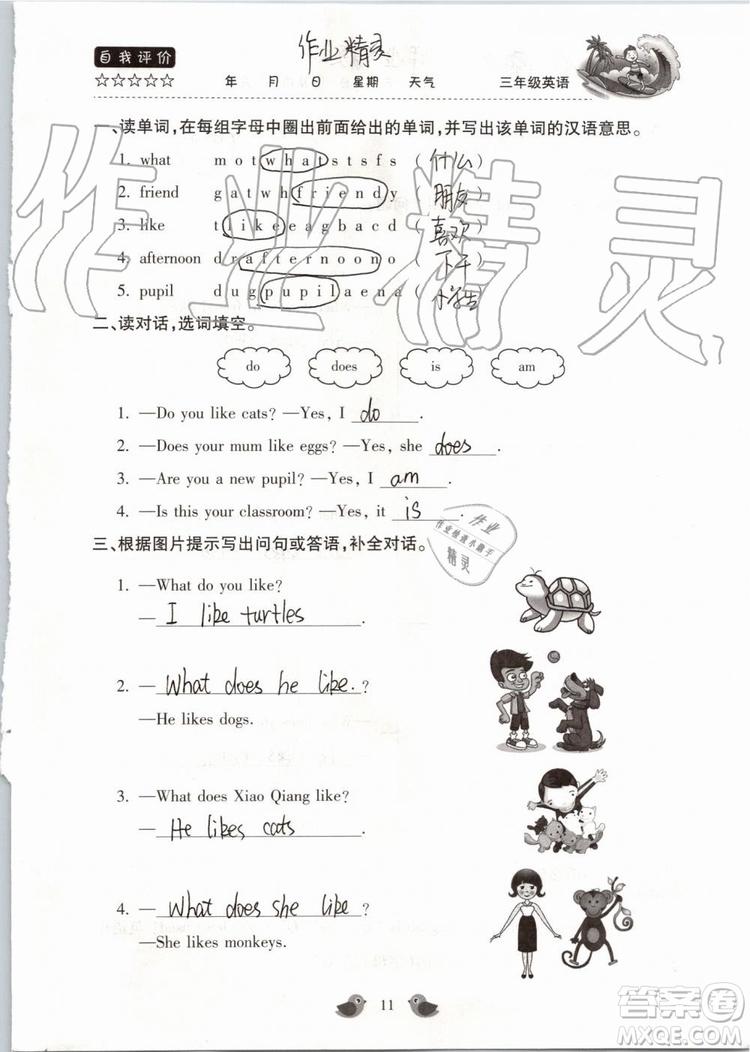 自我评价
作业精灵
☆☆☆☆☆ 年 月 日 星期 天气 三年级英语
一、读单词,在每组字母中圈出前面给出的单词,并写出该单词的汉语意思。
1. what m o t w h a t s t s f s (什么)
2. friend g a t w h f r i e n d y (朋友)
3. like t l i k e e a g b a c d (喜欢)
4. afternoon d r a f t e r n o o n o (下午)
5. pupil d u g p u p i l a e n a (小学生)
二、读对话,选词填空。
do does is am
1. —Do you like cats? —Yes, I do .
2. —Does your mum like eggs? —Yes, she does .
3. —Are you a new pupil? —Yes, I am .
4. —Is this your classroom? —Yes, it is .
三、根据图片提示写出问句或答语,补全对话。
1. —What do you like?
— I like turtles .
2. — What does he like. ?
—He likes dogs.
3. —What does Xiao Qiang like?
— He likes cats .
4. — What does she like ?
—She likes monkeys.
11
作业精灵
作业
作业检查小助手
精灵
答案圈
MXQE.COM